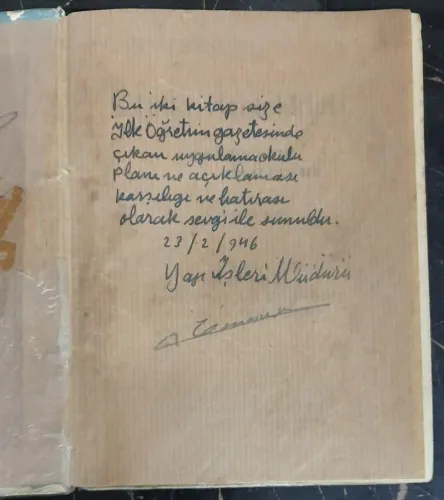 Bu iki kitap size
İlk Öğretim gazetesinde
çıkan uygulama okulu
Planı ve açıklaması
karşılığı ve hatırası
olarak sevgi ile sunuldu.
23/2/946
Yapı İşleri Müdürü